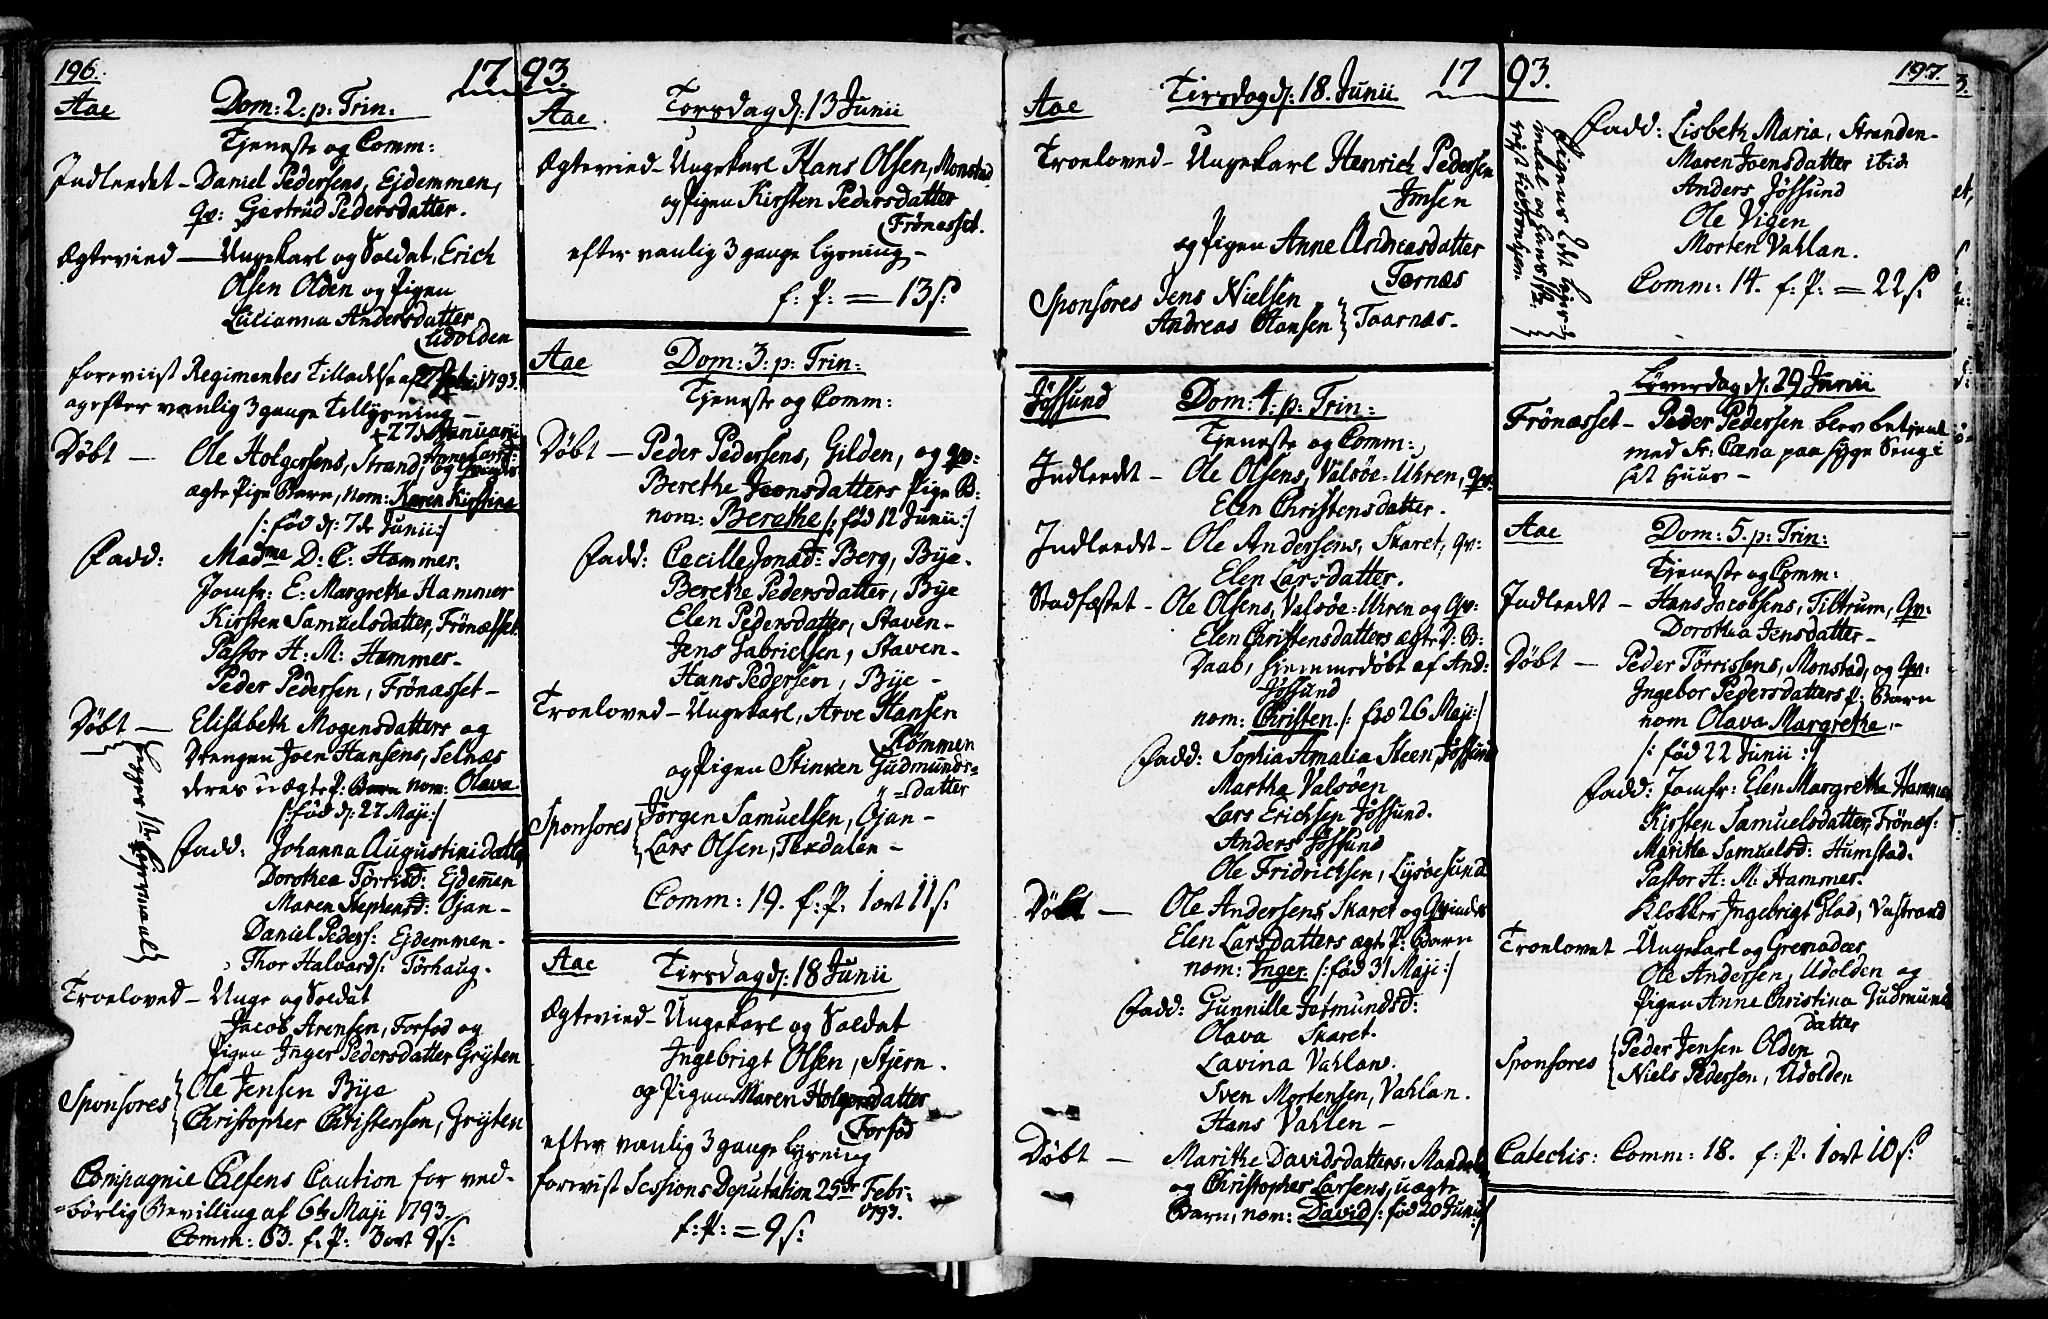 196.
1793.
Aae
Dom: 2. p: Trin:
Tjeneste og Comm:
Indleedt – Daniel Pedersens, Ejdemmen,
qv: Gjertrud Pedersdatter.
Ægtevied — Ungekarl og Soldat, Erich
Olsen Olden og Pigen
Lucianna Andersdatter
Udolden
foreviist Regimentes Tilladelse af 1793.
og efter vanlig 3 gange Tillysning –
+ 27 Januarii
Døbt — Ole Holgersens, Strand, og
ægte Pige Barn, nom: Karen Kirstina
/: fød d: 7de Junii :/
Fadd: Madme D: C: Hammer.
Jomfr: E: Margrethe Hammer
Kirsten Samuelsdatter, Frönæsset.
Pastor H: M: Hammer –
Peder Pedersen, Frönæsset –
Døbt — Elisabeth Mogensdatters og
Drengen Joen Hansens, Selnæs
deres uægte P: Barn nom: Olava.
/: fød d: 27 Maji :/
begges 1te Leyermaal
Fadd: Johanna Augustinidatter
Dorothea Törrisd: Ejdemmen
Maren Stephensd: Ojan –
Daniel Peders: Ejdemmen –
Thor Halvards: Törhaug.
Troeloved – Unge og Soldat
Jacob Arensen, Forfod og
Pigen Inger Pedersdatter Gryten
Sponsores Ole Jensen Bye
Christopher Christensen, Gryten
Compagnie Chefens Caution for ved-
=börlig Bevilling af 6te Maji 1793.
Comm: 63. f: P: 3 ort 9 s:
Aae.
Torsdag d: 13 Junii
Ægtevied – Ungekarl Hans Olsen, Monstad
og Pigen Kirsten Pedersdatter
Frönæsset.
efter vanlig 3 gange lysning –
f: P: = 13 s:
Aae
Dom: 3: p: Trin:
Tjeneste og Comm:
Døbt — Peder Pedersens, Gilden, og qv:
Berethe Joensdatters Pige B:
nom: Berethe /: fød 12 Junii :/
Fadd: Cecille Jonæd: Berg, Bye.
Berethe Pedersdatter, Bye
Elen Pedersdatter, Staven –
Jens Gabrielsen, Staven –
Hans Pedersen, Bye –
Troeloved – Ungekarl, Arve Hansen
Römmen
og Pigen Stinken Gudmunds=
=datter
Sponsores Jörgen Samuelsen, Ojan –
Lars Olsen, Texdalen –
Comm: 19. f: P: 1 ort 11 s:
Aae
Tirsdag d: 18 Junii
Ægtevied – Ungekarl og Soldat
Ingebrigt Olsen, Stjern.
og Pigen Maren Holgersdatter
Forfod
efter vanlig 3 gange lysning
foreviist Sessions Deputation 25de Febr:
1793.
f: P: = 9 s:
Aae
Tirsdag d: 18. Junii
1793.
197.
Troeloved – Ungekarl Henrich Pedersen
Imsen
og Pigen Anne Andreasdatter
Ternæs
Sponsores Jens Nielsen
Andreas Hansen Taarnæs –
Jössund
Dom: 4: p: Trin:
Tjeneste og Comm:
Indleedt – Ole Olsens, Valsöe-Uhren, qv:
Elen Christensdatter.
Indleedt – Ole Andersens, Skaret, qv:
Elen Larsdatter.
Stadfæstet – Ole Olsens, Valsöe-Uhren og qv:
Elen Christensdatters ægte D: B:
Daab, hjemmedøbt af And:
Jössund
nom: Christen. /: fød 26 Maji :/
Fadd: Sophia Amalia Steen, Jössund
Martha Valsöen
Lars Erichsen Jössund.
Anders Jössund
Ole Fridrichsen, Lysöesund
Døbt — Ole Andersens Skaret og Qvindes
Elen Larsdatters ægte P: Barn
nom: Inger /: fød 31 Maji :/
Fadd: Gunnille Jetmundsd:
Olava Skaret.
Lavina Vahlan.
Sven Mortensen, Vahlan.
Hans Vahlen –
Døbt — Marithe Davidsdatters, Mandalen
og Christopher Larsens, uægte
Barn, nom: David /: fød 20 Junii :/
Pigens 2det Leyer-
maal og hans 1te
Fadd: Lisbeth Maria, Stranden –
Maren Joensdatter ibid:
Anders Jössund
Ole Vigen
Morten Vahlan.
Comm: 14. f: P: = 22 s:
Løverdag d: 29 Junii
Frönæsset – Peder Pedersen blev betjent
med Sr: Cæna paa syge Seng i
sit Huus –
Aae
Dom: 5. p: Trin:
Tjeneste og Comm:
Indleedt – Hans Jacobsens, Tiltrum, Qv:
Dorothea Jensdatter –
Døbt — Peder Törrisens, Monstad, og Qv:
Ingebor Pedersdatters P: Barn
nom Olava Margrethe. –
/: fød 22 Junii :/
Fadd: Jomfr: Elen Margretha Hammer
Kirsten Samuelsdatter, Frönæs:
Marithe Samuelsd: Humstad.
Pastor H: M: Hammer.
Klokker Ingebrigt Blad, Vastrand
Troelovet – Ungekarl og Grenadeer
Ole Andersen, Udolden og
Pigen Anne Christina Gudmunds
datter
Sponsores Peder Jensen Olden
Niels Pedersen, Udolden
Catechis: Comm: 18. f: P. 1 ort 10 s: